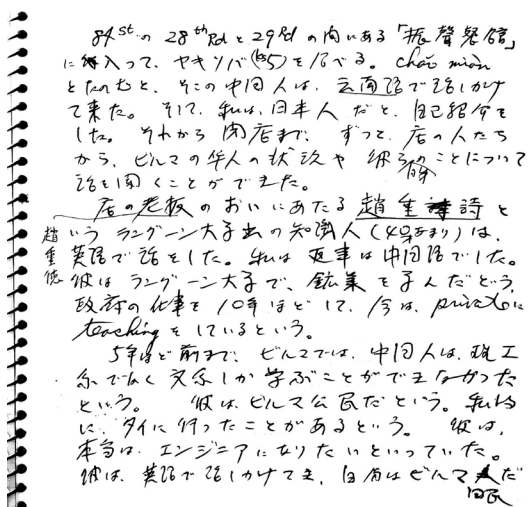 84stの 28th Rdと29Rdの間にある「振聲餐館」
に入って、ヤキソバ(ks5)を食べる。chǎo miàn
とたのむと、そこの中国人は、雲南語で話しかけ
て来た。そして、私は、日本人だと、自己紹介を
した。それから閉店まで、ずっと、店の人たち
から、ビルマの華人の状況や彼らのことについて
話を聞くことができた。
店の老板のおいにあたる趙重詩と
いうラングーン大学出の知識人(40あまり)は、
趙重德
英語で話をした。私は返事は中国語でした。
彼はラングーン大学で、鉱業を学んだという。
政府の仕事を10年ほどして、今は、privateに
teachingをしているという。
5年ほど前まで、ビルマでは、中国人は、理工
系でなく文系しか学ぶことができなかった
という。彼は、ビルマ公民だという。
に、タイに行ったことがあるという。彼は、
本当は、エンジニアになりたいといっていた。
彼は、英語で話しかけてき、自分はビルマ人だ
国民